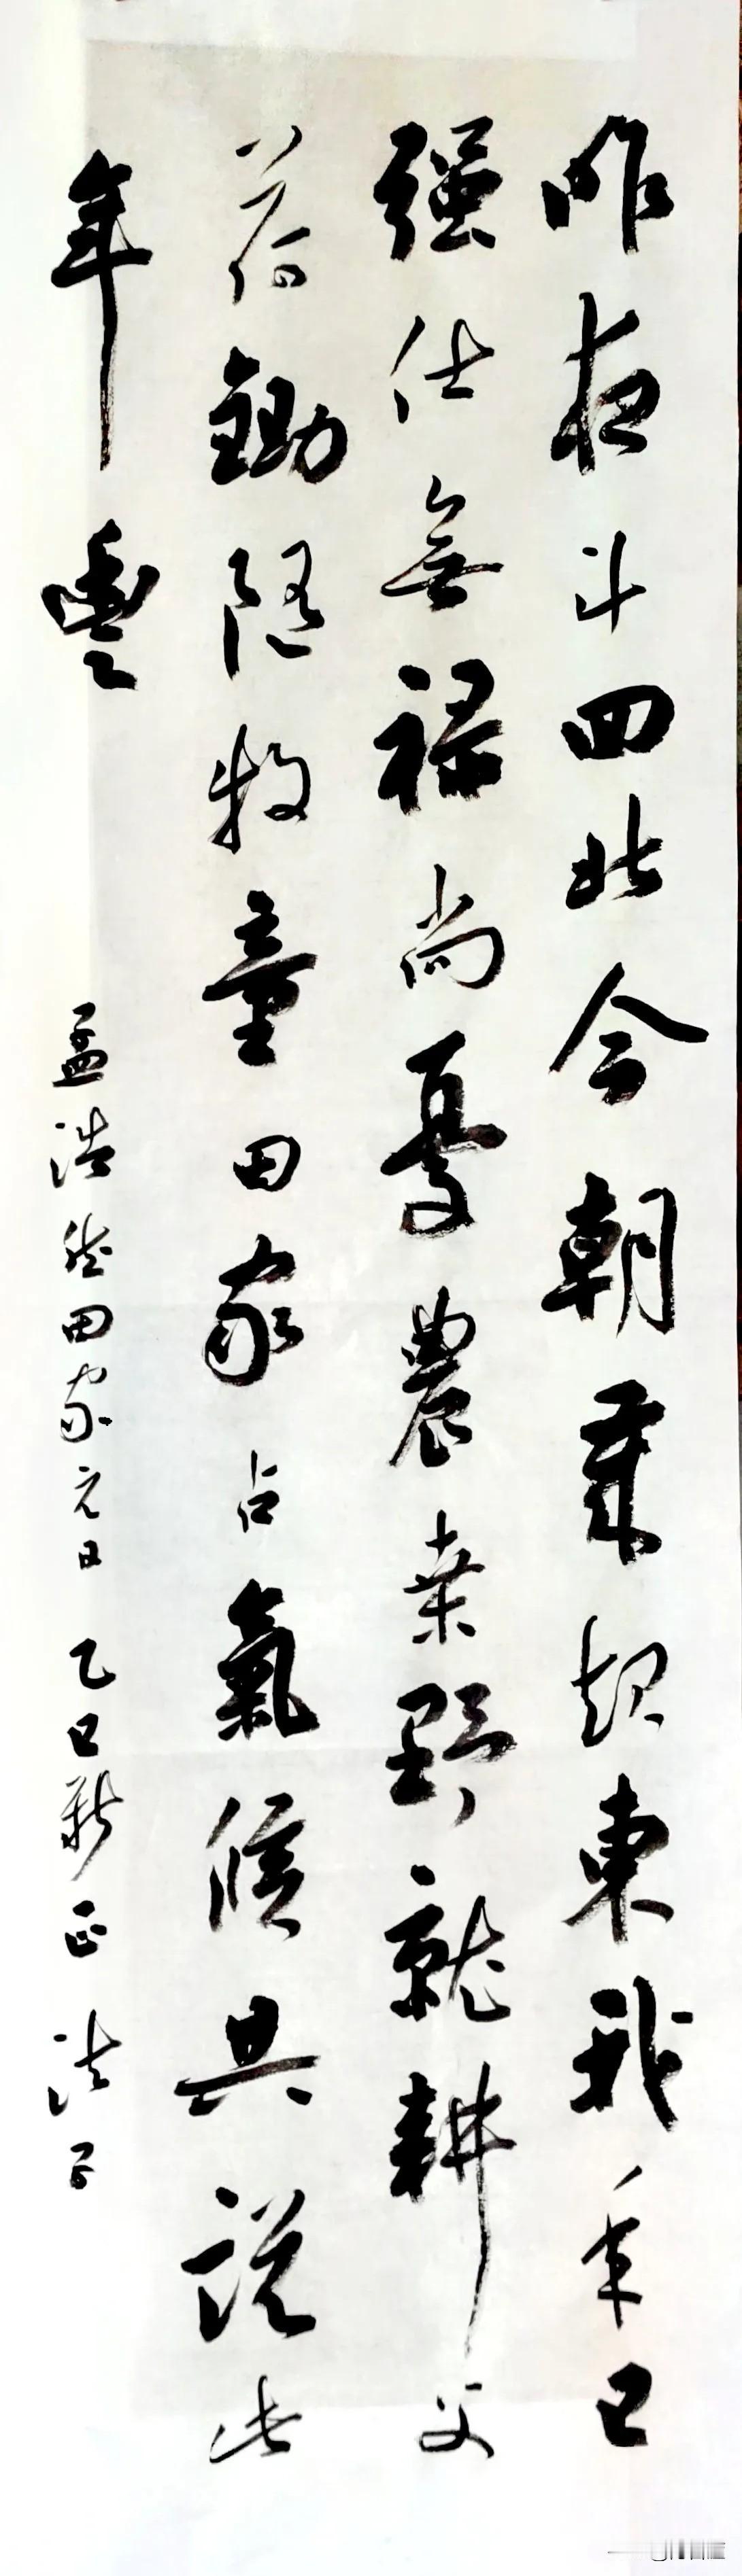 昨夜斗回北今朝歲起東我年已
强仕無禄尚憂農桑野就耕父
荷鋤隨牧童田家占氣候共説此
年豐
孟浩然田家元日 乙巳新正 洪